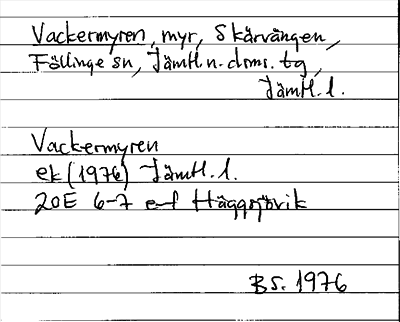 Vackermyren, myr, Skärvången,
Föllinge sn, Jämtl.n.doms.tg,
Jämtl.l.
Vackermyren
ek (1976) Jämtl.l.
20E 6-7 e-f Häggsjövik
BS. 1976